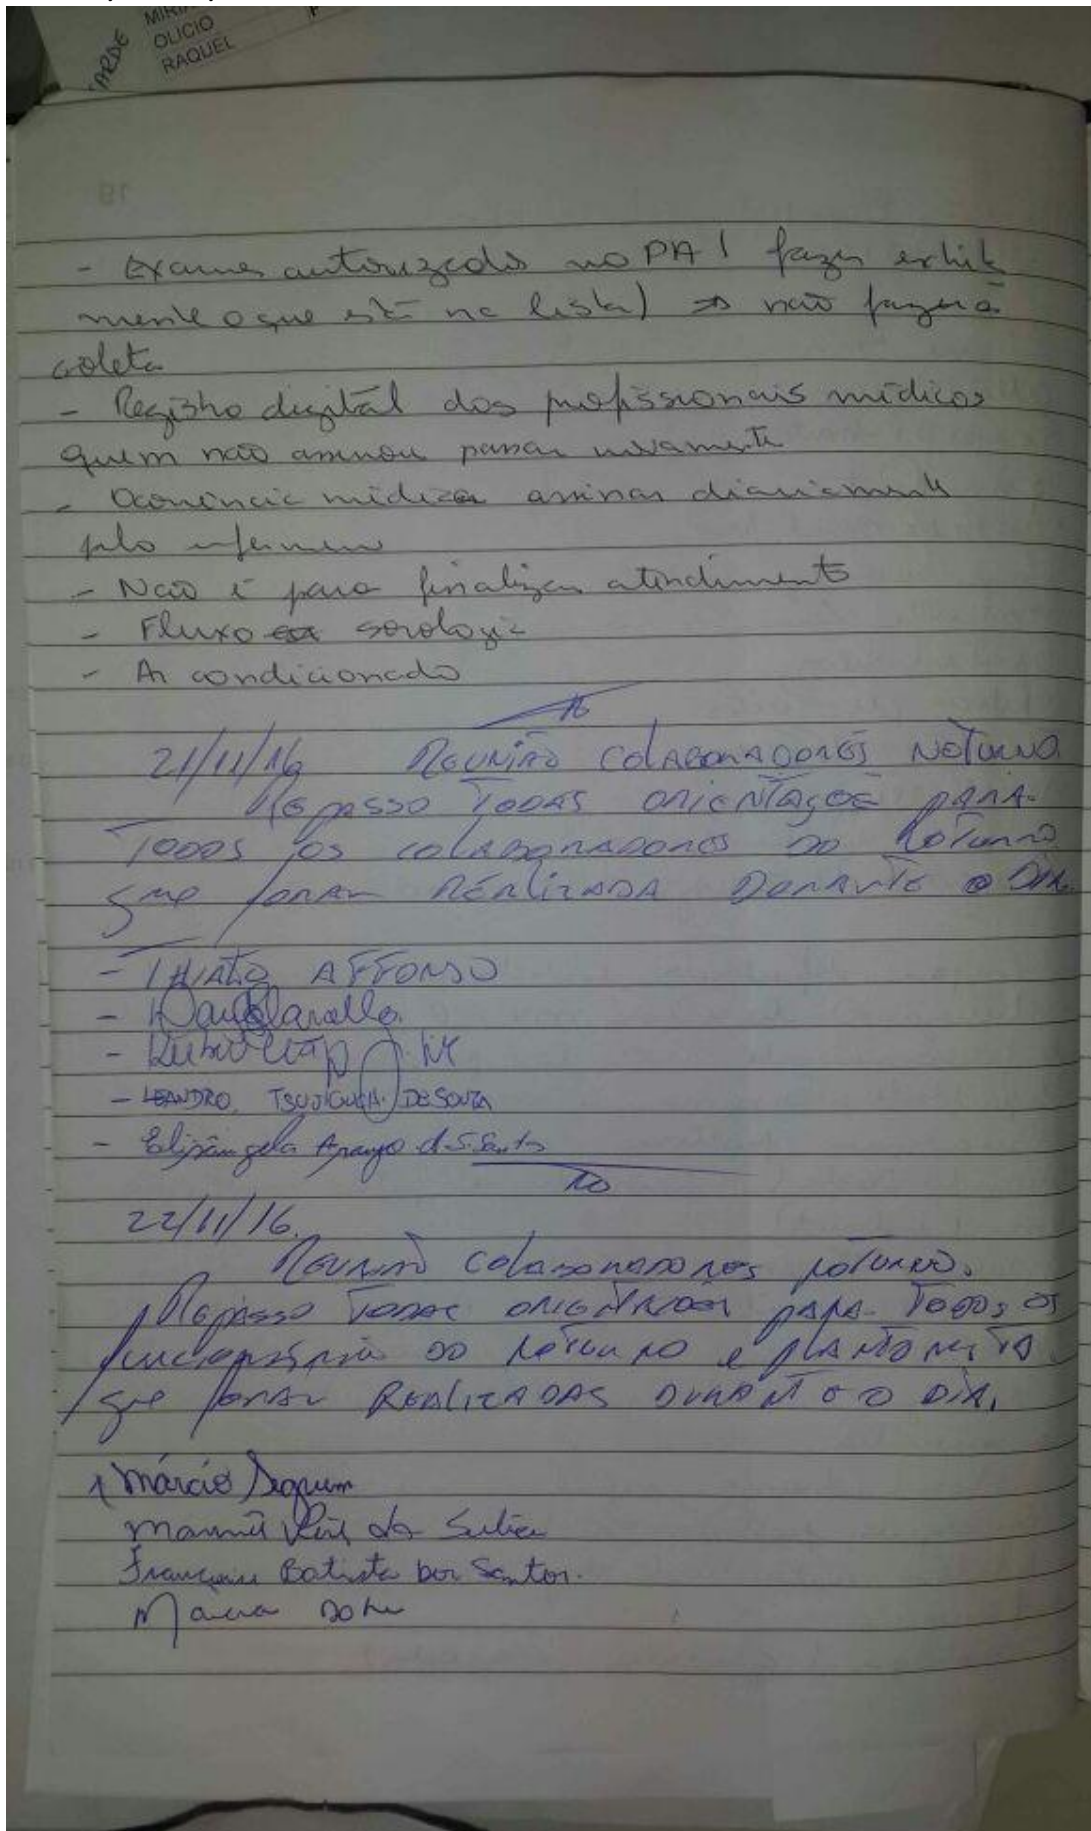 TARDE
OLICIO
RAQUEL
- Exames autorizado no PA (fazer
mente o que está na lista) => não fazer a
coleta
- Registro digital dos profissionais médicos
quem não assinou passar novamente
- Ocorrência médica assinar diariamente
pelo enfermeiro
- Não é para finalizar atendimento
- Fluxo sorologia
- Ar condicionado
21/11/16 Reunião colaboradores noturno
Repasso todas orientaçoe para
todos os colaboradores do noturno
que foram realizada durante o dia.
- AFFONSO
- LEANDRO DE SOUZA
- Elisângela Araujo d. S. Santos
22/11/16.
Reunião colaboradores noturno.
Repasso todas para todos os
do noturno e plantonista
que foram REALIZADAS durante o DIA.
Márcio
da
Batista dos Santos.